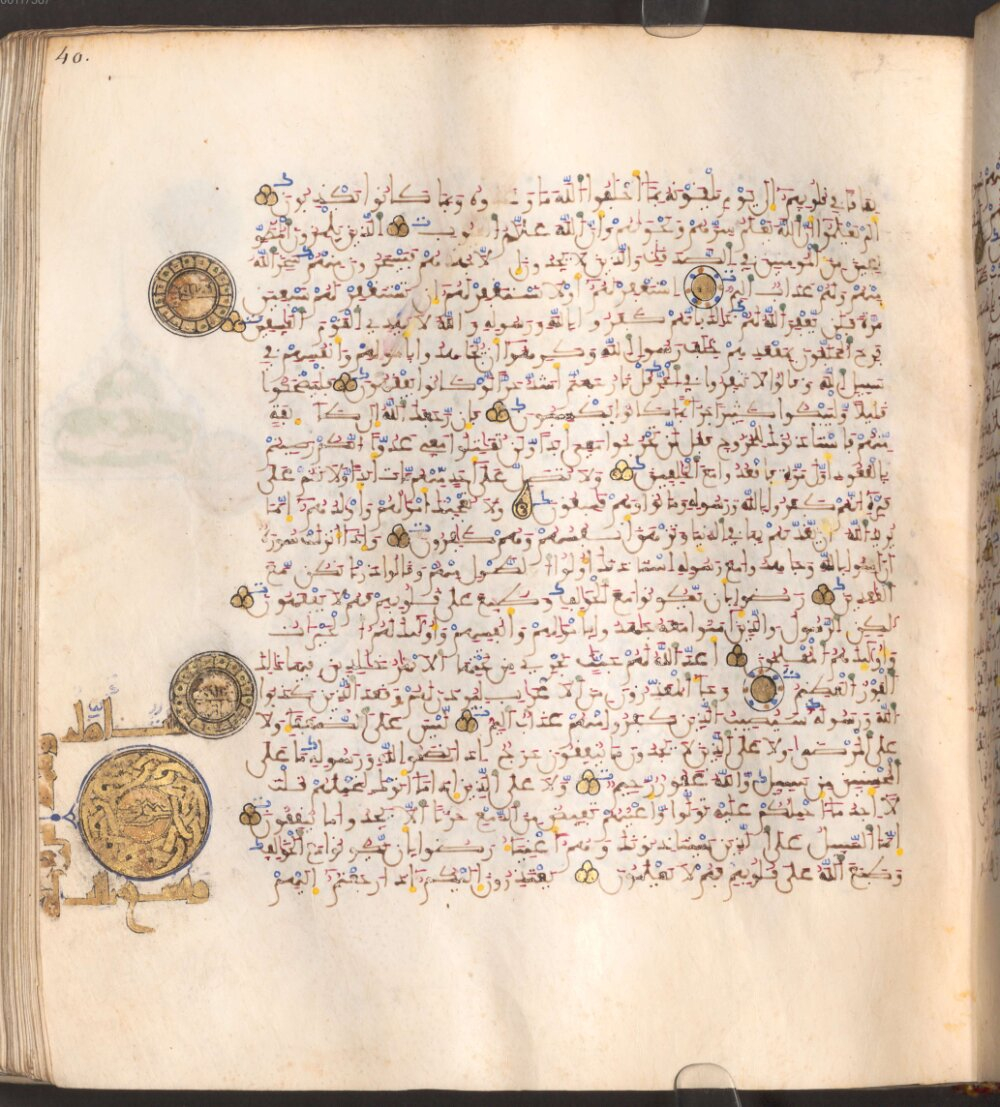 40.
نفاقا في قلوبهم إلى يوم يلقونه بما أخلفوا الله ما وعدوه وبما كانوا يكذبون
ألم يعلموا أن الله يعلم سرهم ونجويهم وأن الله علم الغيوب الذين يلمزون المطو
عين من المومنين في الصدقت والذين لا يجدون إلا جهدهم فيسخرون منهم سخر الله
منهم ولهم عذاب أليم استغفر لهم أو لا تستغفر لهم إن تستغفر لهم سبعين
مرة فلن يغفر الله لهم ذلك بأنهم كفروا بالله ورسوله والله لا يهدي القوم الفسقين
فرح المخلفون بمقعدهم خلف رسول الله وكرهوا أن يجهدوا بأمولهم وأنفسهم في
سبيل الله وقالوا لا تنفروا في الحر قل نار جهنم أشد حرا لو كانوا يفقهون فليضحكوا
قليلا وليبكوا كثيرا جزاء بما كانوا يكسبون فإن رجعك الله إلى طائفة
منهم فاستاذنوك للخروج فقل لن تخرجوا معي أبدا ولن تقتلوا معي عدوا إنكم رضيتم
بالقعود أول مرة فاقعدوا مع الخلفين ولا تصل على أحد منهم مات أبدا ولا تقم على
قبره إنهم كفروا بالله ورسوله وماتوا وهم فسقون ولا تعجبك أمولهم وأولدهم إنما
يريد الله أن يعذبهم بها في الدنيا وتزهق أنفسهم وهم كفرون وإذا أنزلت سورة
أن امنوا بالله وجهدوا مع رسوله استاذنك أولوا الطول منهم وقالوا ذرنا نكن مع
القعدين رضوا بأن يكونوا مع الخوالف وطبع على قلوبهم فهم لا يفقهون
لكن الرسول والذين امنوا معه جهدوا بأمولهم وأنفسهم وأولئك لهم الخيرت
وأولئك هم المفلحون أعد الله لهم جنت تجري من تحتها الانهر خلدين فيها ذلك
الفوز العظيم وجاء المعذرون من الاعراب ليوذن لهم وقعد الذين كذبوا
الله ورسوله سيصيب الذين كفروا منهم عذاب أليم ليس على الضعفاء ولا
على المرضى ولا على الذين لا يجدون ما ينفقون حرج إذا نصحوا لله ورسوله ما على
المحسنين من سبيل والله غفور رحيم ولا على الذين إذا ما أتوك لتحملهم قلت
لا أجد ما أحملكم عليه تولوا وأعينهم تفيض من الدمع حزنا ألا يجدوا ما ينفقون
إنما السبيل على الذين يستاذنونك وهم أغنياء رضوا بأن يكونوا مع الخوالف
وطبع الله على قلوبهم فهم لا يعلمون يعتذرون إليكم إذا رجعتم إليهم